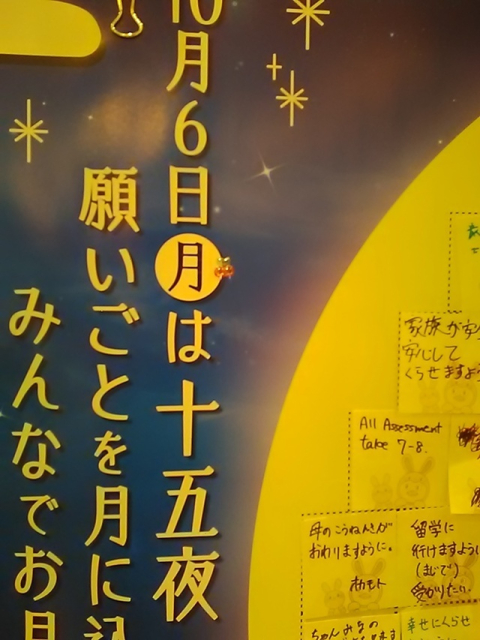 10月6日月は十五夜
願いごとを月に込
みんなでお月
家族が安
安心して
くらせますよう
All Assessment
take 7-8.
母のこうねんきが
おわりますように。
留学に
行けますように
(まじで)
受かりたい
ちゃんみなの
幸せにくらせ